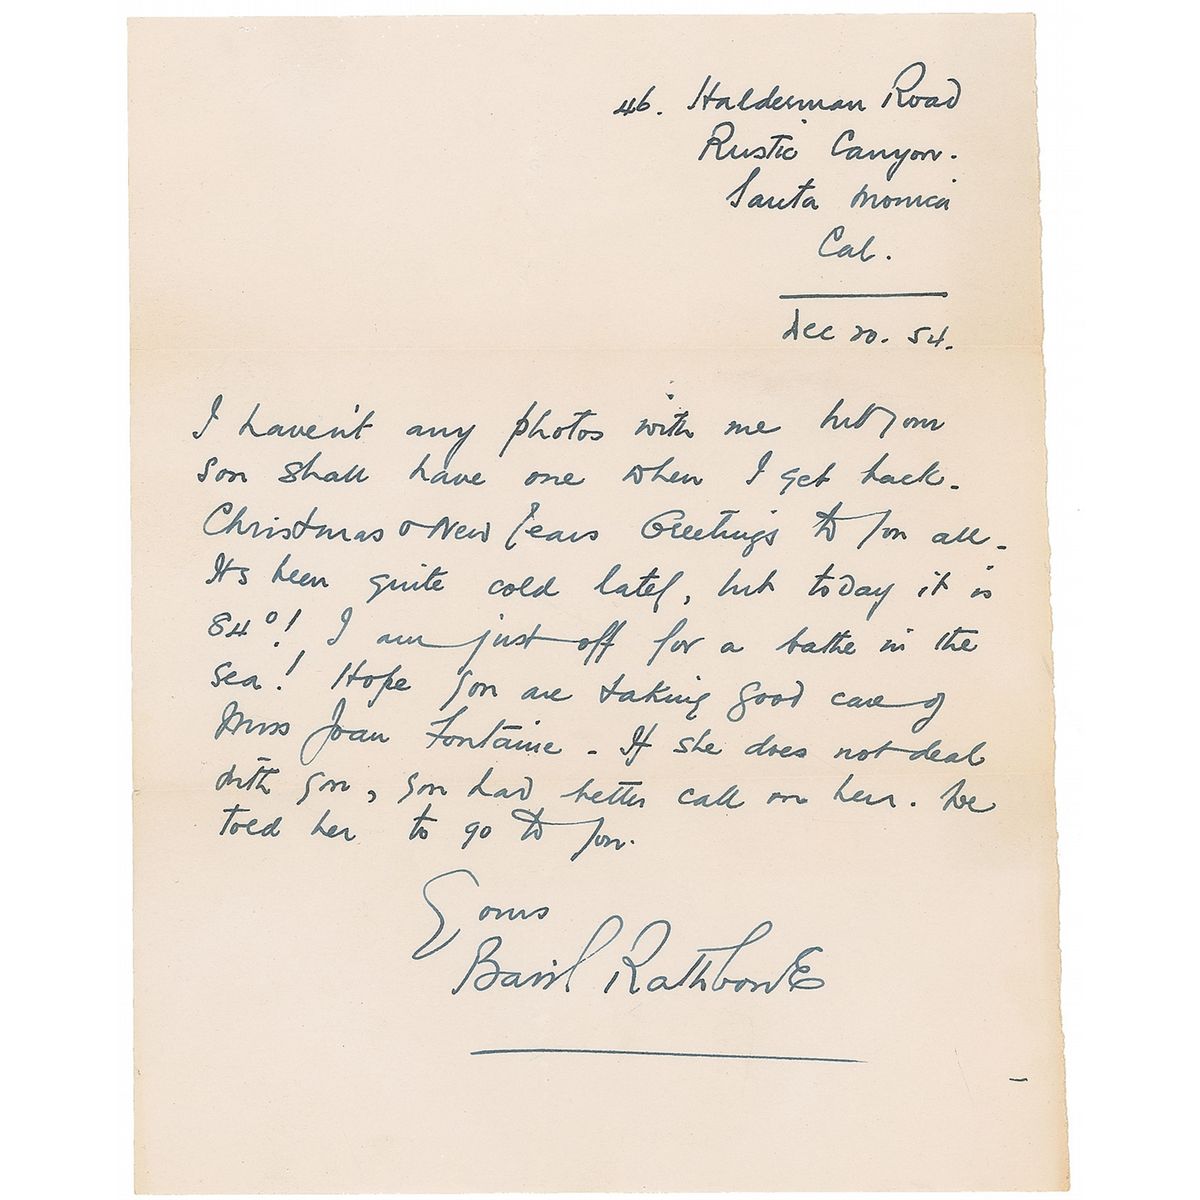 46. Halderman Road
Rustic Canyon.
Santa Monica
Cal.
Dec 20. 54.
I haven't any photos with me but your
son shall have one when I get back.
Christmas & New Years Greetings to you all.
Its been quite cold lately, but today it is
84°! I am just off for a bathe in the
sea! Hope you are taking good care of
Miss Joan Fontaine. If she does not deal
with you, you had better call on her. We
told her to go to you.
Yours
Basil Rathbone